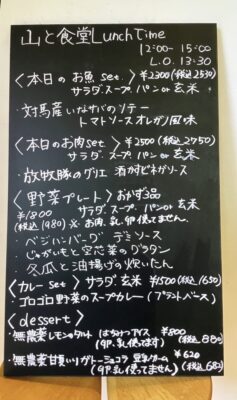 山と食堂 Lunch Time
12:00- 15:00
L.O. 13:30
〈本日のお魚set〉 ¥2300(税込2530)
サラダ. スープ パン or 玄米
・対馬産いなサバのソテー
トマトソース オレガノ風味
〈本日のお肉set〉 ¥2500(税込2750)
サラダ. スープ パン or 玄米
・放牧豚のグリエ 酒かすとねぎソース
〈野菜プレート〉おかず3品
¥1800 サラダ. スープ. パン or 玄米
(税込1980) ※お肉、乳、卵使ってません。
・ベジハンバーグ デミソース
・じゃがいもと空芯菜のグラタン
・冬瓜と油揚げの炊いたん
〈カレーset〉サラダ 玄米 ¥1500(税込1650)
・ゴロゴロ野菜のスープカレー (プラントベース)
〈dessert〉
・無農薬レモンのタルト はちみつアイス ¥800
(税込880)
・無農薬甘夏いりガトーショコラ 豆乳ホイップ ¥620
(卵.乳使ってません) (税込682)